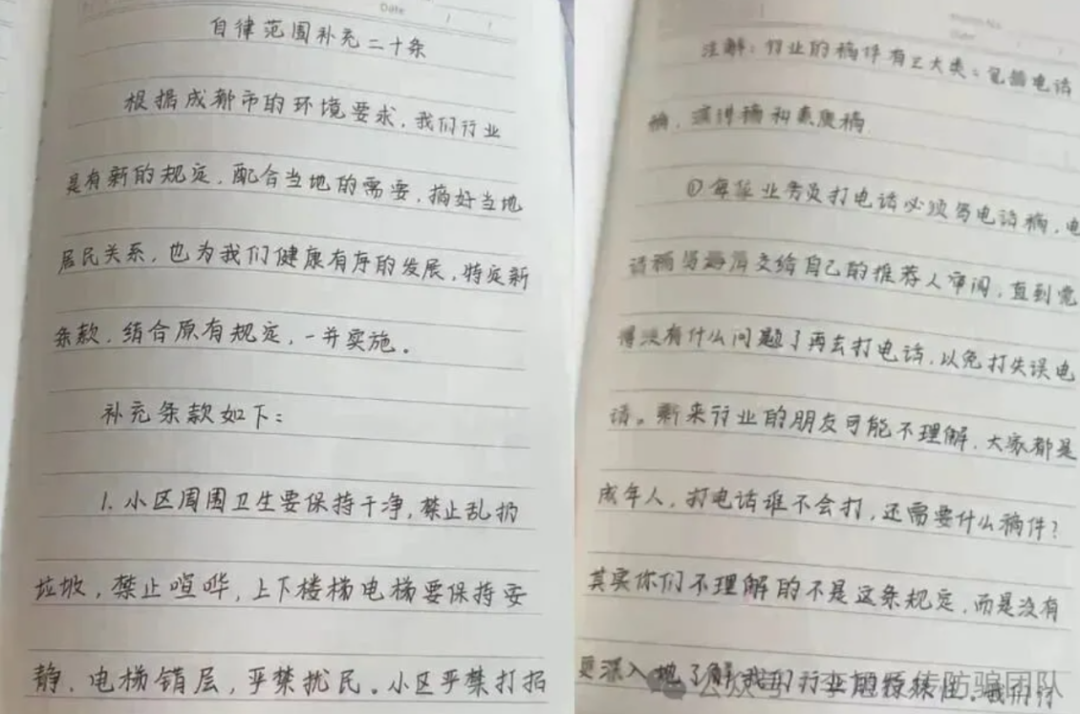 Date
自律范围补充二十条
根据成都市的环境要求,我们行业
是有新的规定,配合当地的需要,搞好当地
居民关系,也为我们健康有序的发展,特定新
条款,结合原有规定,一并实施。
补充条款如下:
1.小区周围卫生要保持干净,禁止乱扔
垃圾,禁止喧哗,上下楼梯电梯要保持安
静、电梯错层,严禁扰民。小区严禁打招
Date
注解:行业的稿件有三大类:电话
稿,演讲稿和
①每位业务员打电话必须写电话稿,电
话稿写交给自己的推荐人审阅,直到觉
得没有什么问题了再去打电话,以免打失误电
话。新来行业的朋友可能不理解,大家都是
成年人,打电话谁不会打,还需要什么稿件?
其实你们不理解的不是这条规定,而是没有
更深入地了解我们行业的特殊性。我们行
公众号 防骗团队